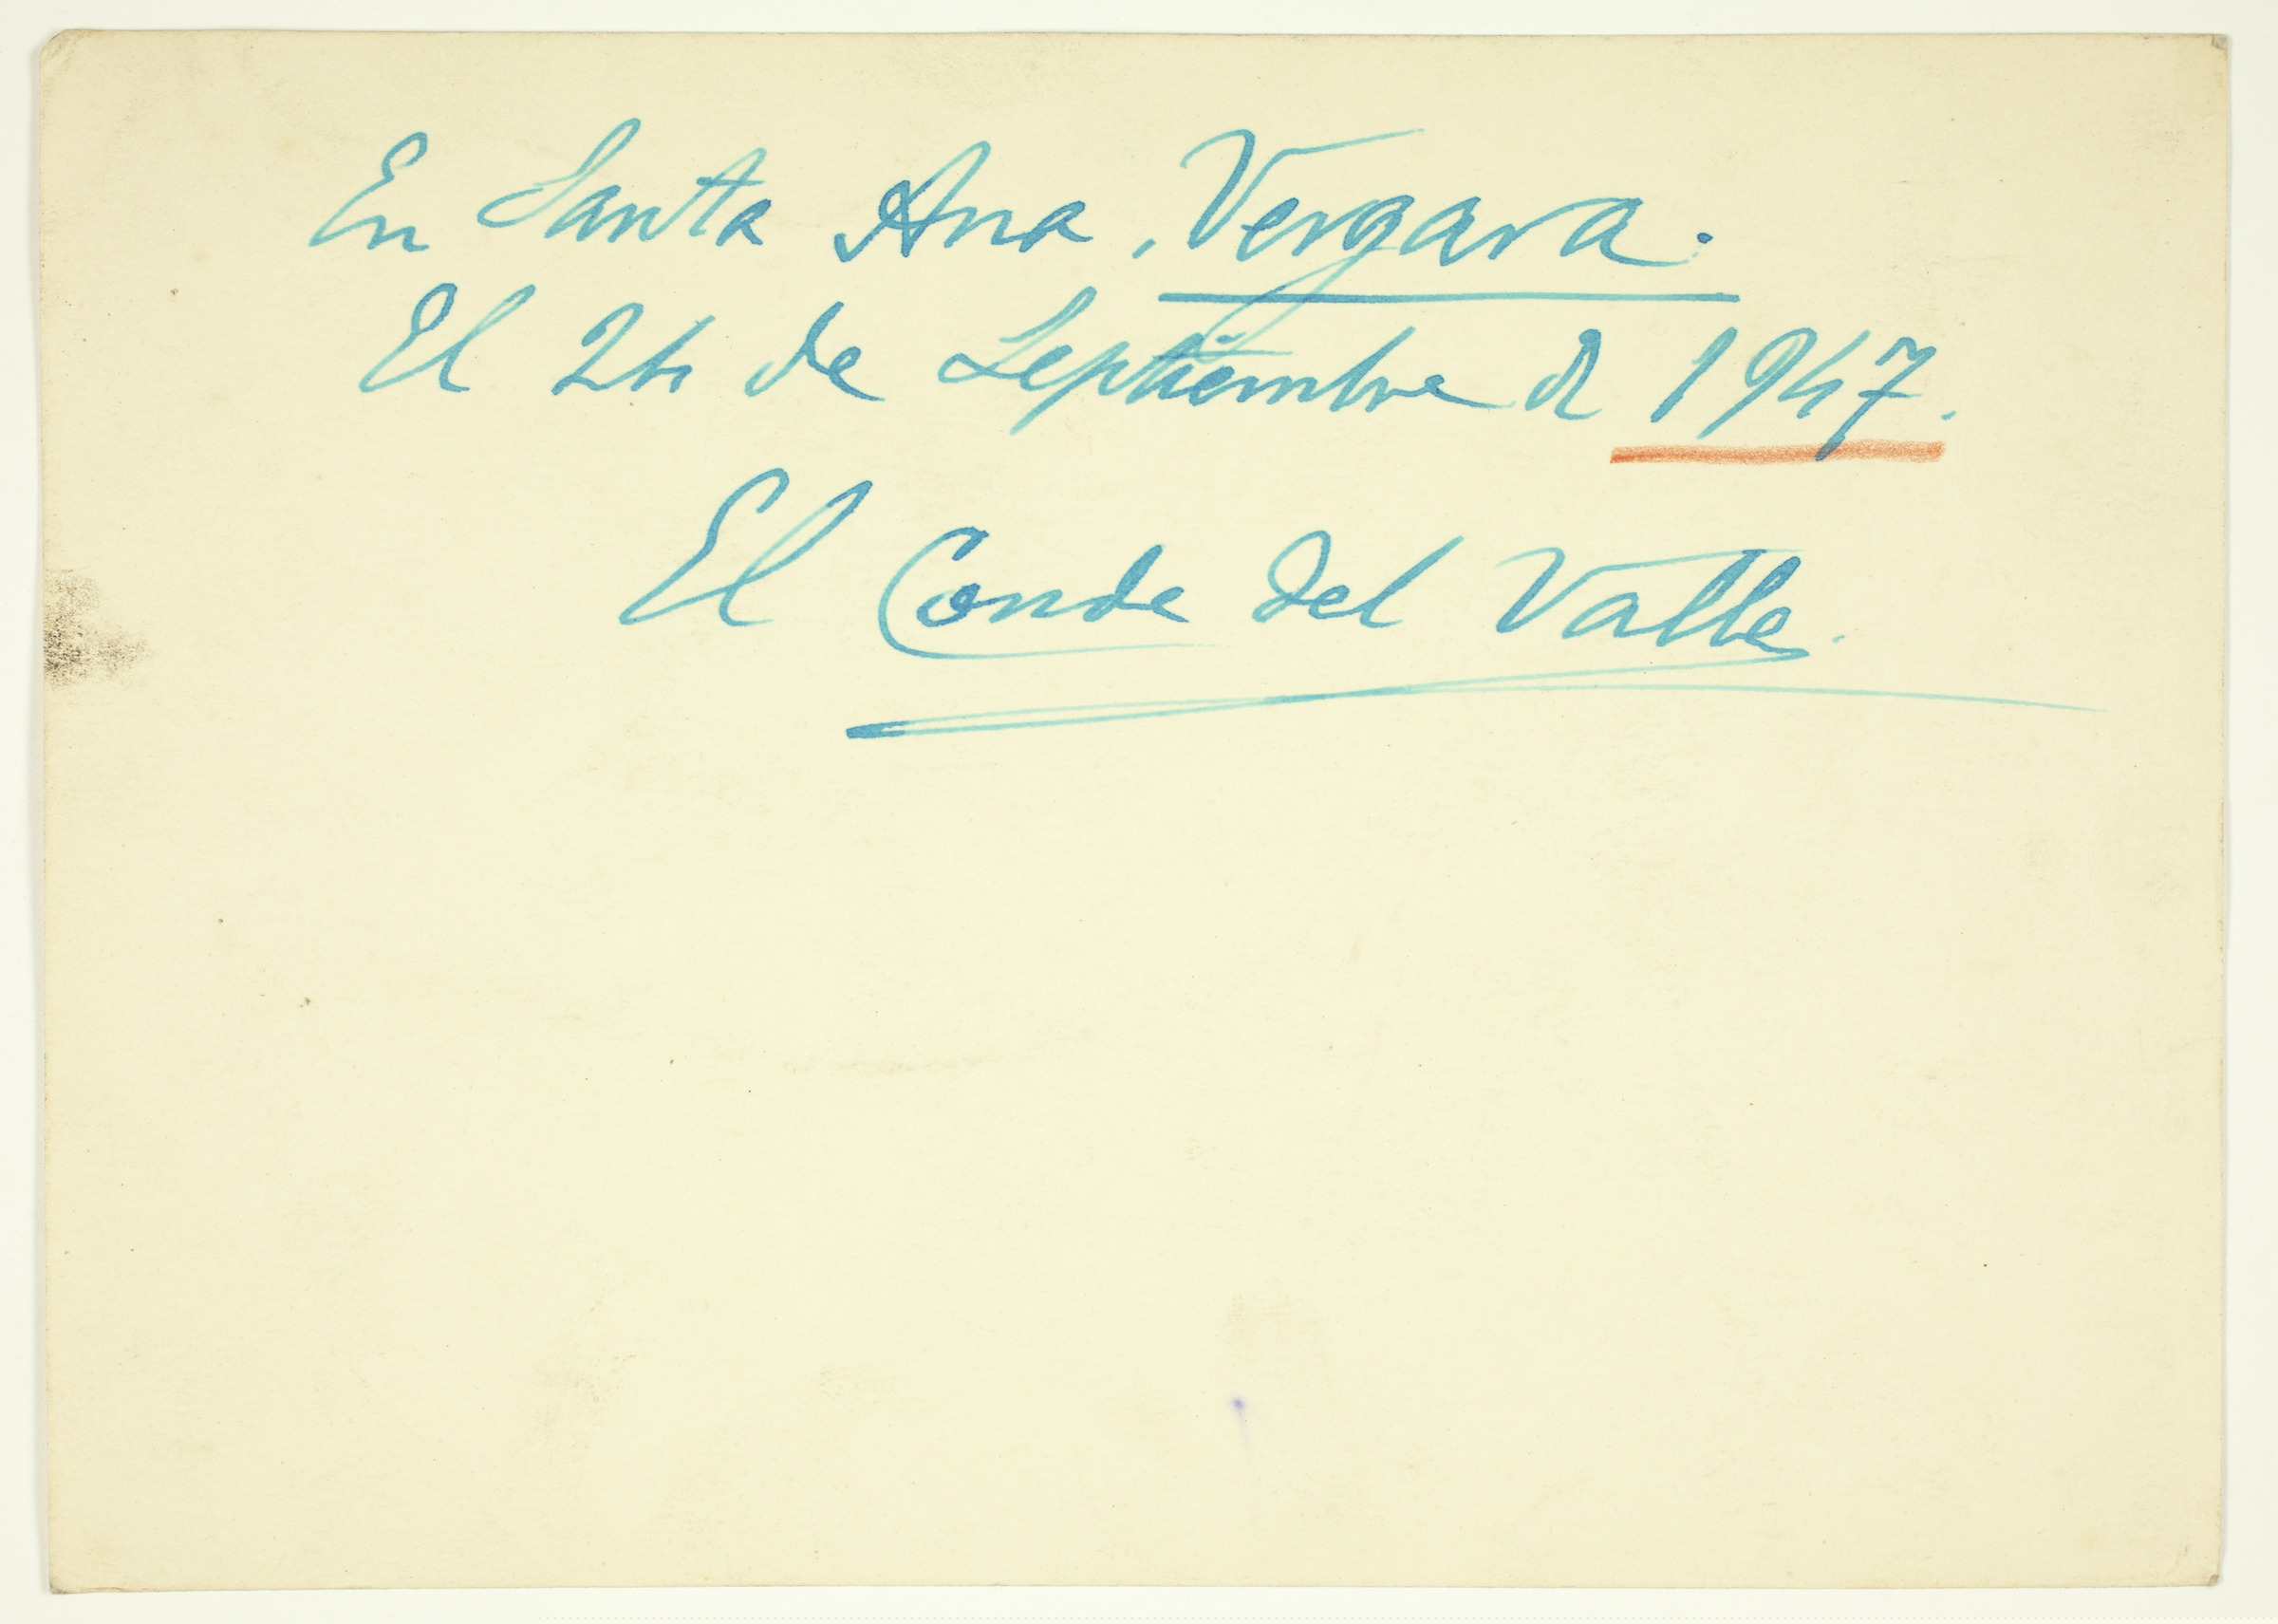 En Santa Ana, Vergara.
El 24 de Septiembre de 1947.
El Conde del Valle.